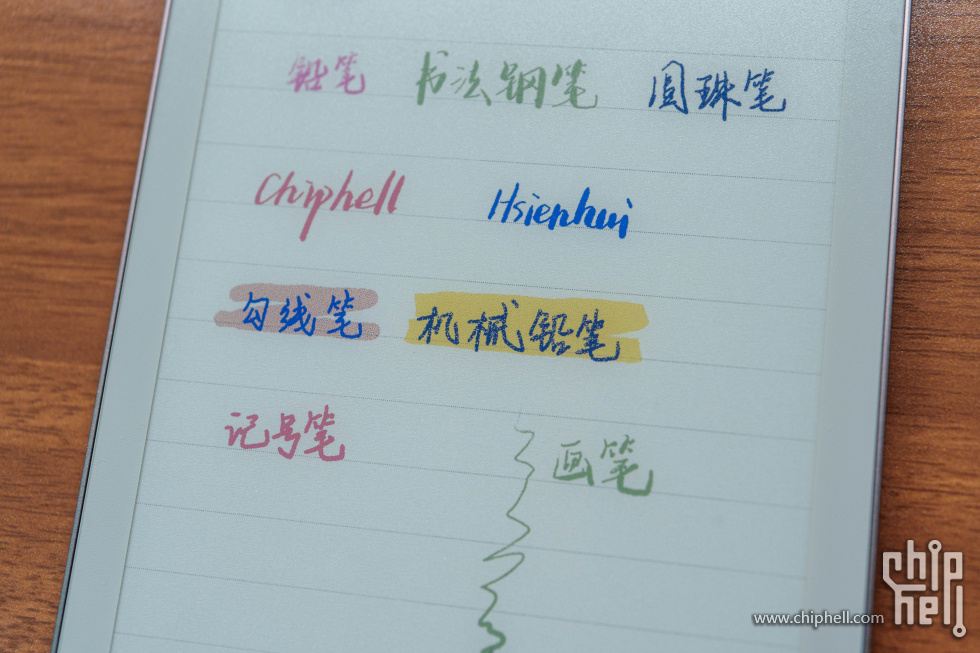 铅笔 书法钢笔 圆珠笔
Chiphell Hsienhui
勾线笔 机械铅笔
记号笔 画笔
www.chiphell.com
chip hell